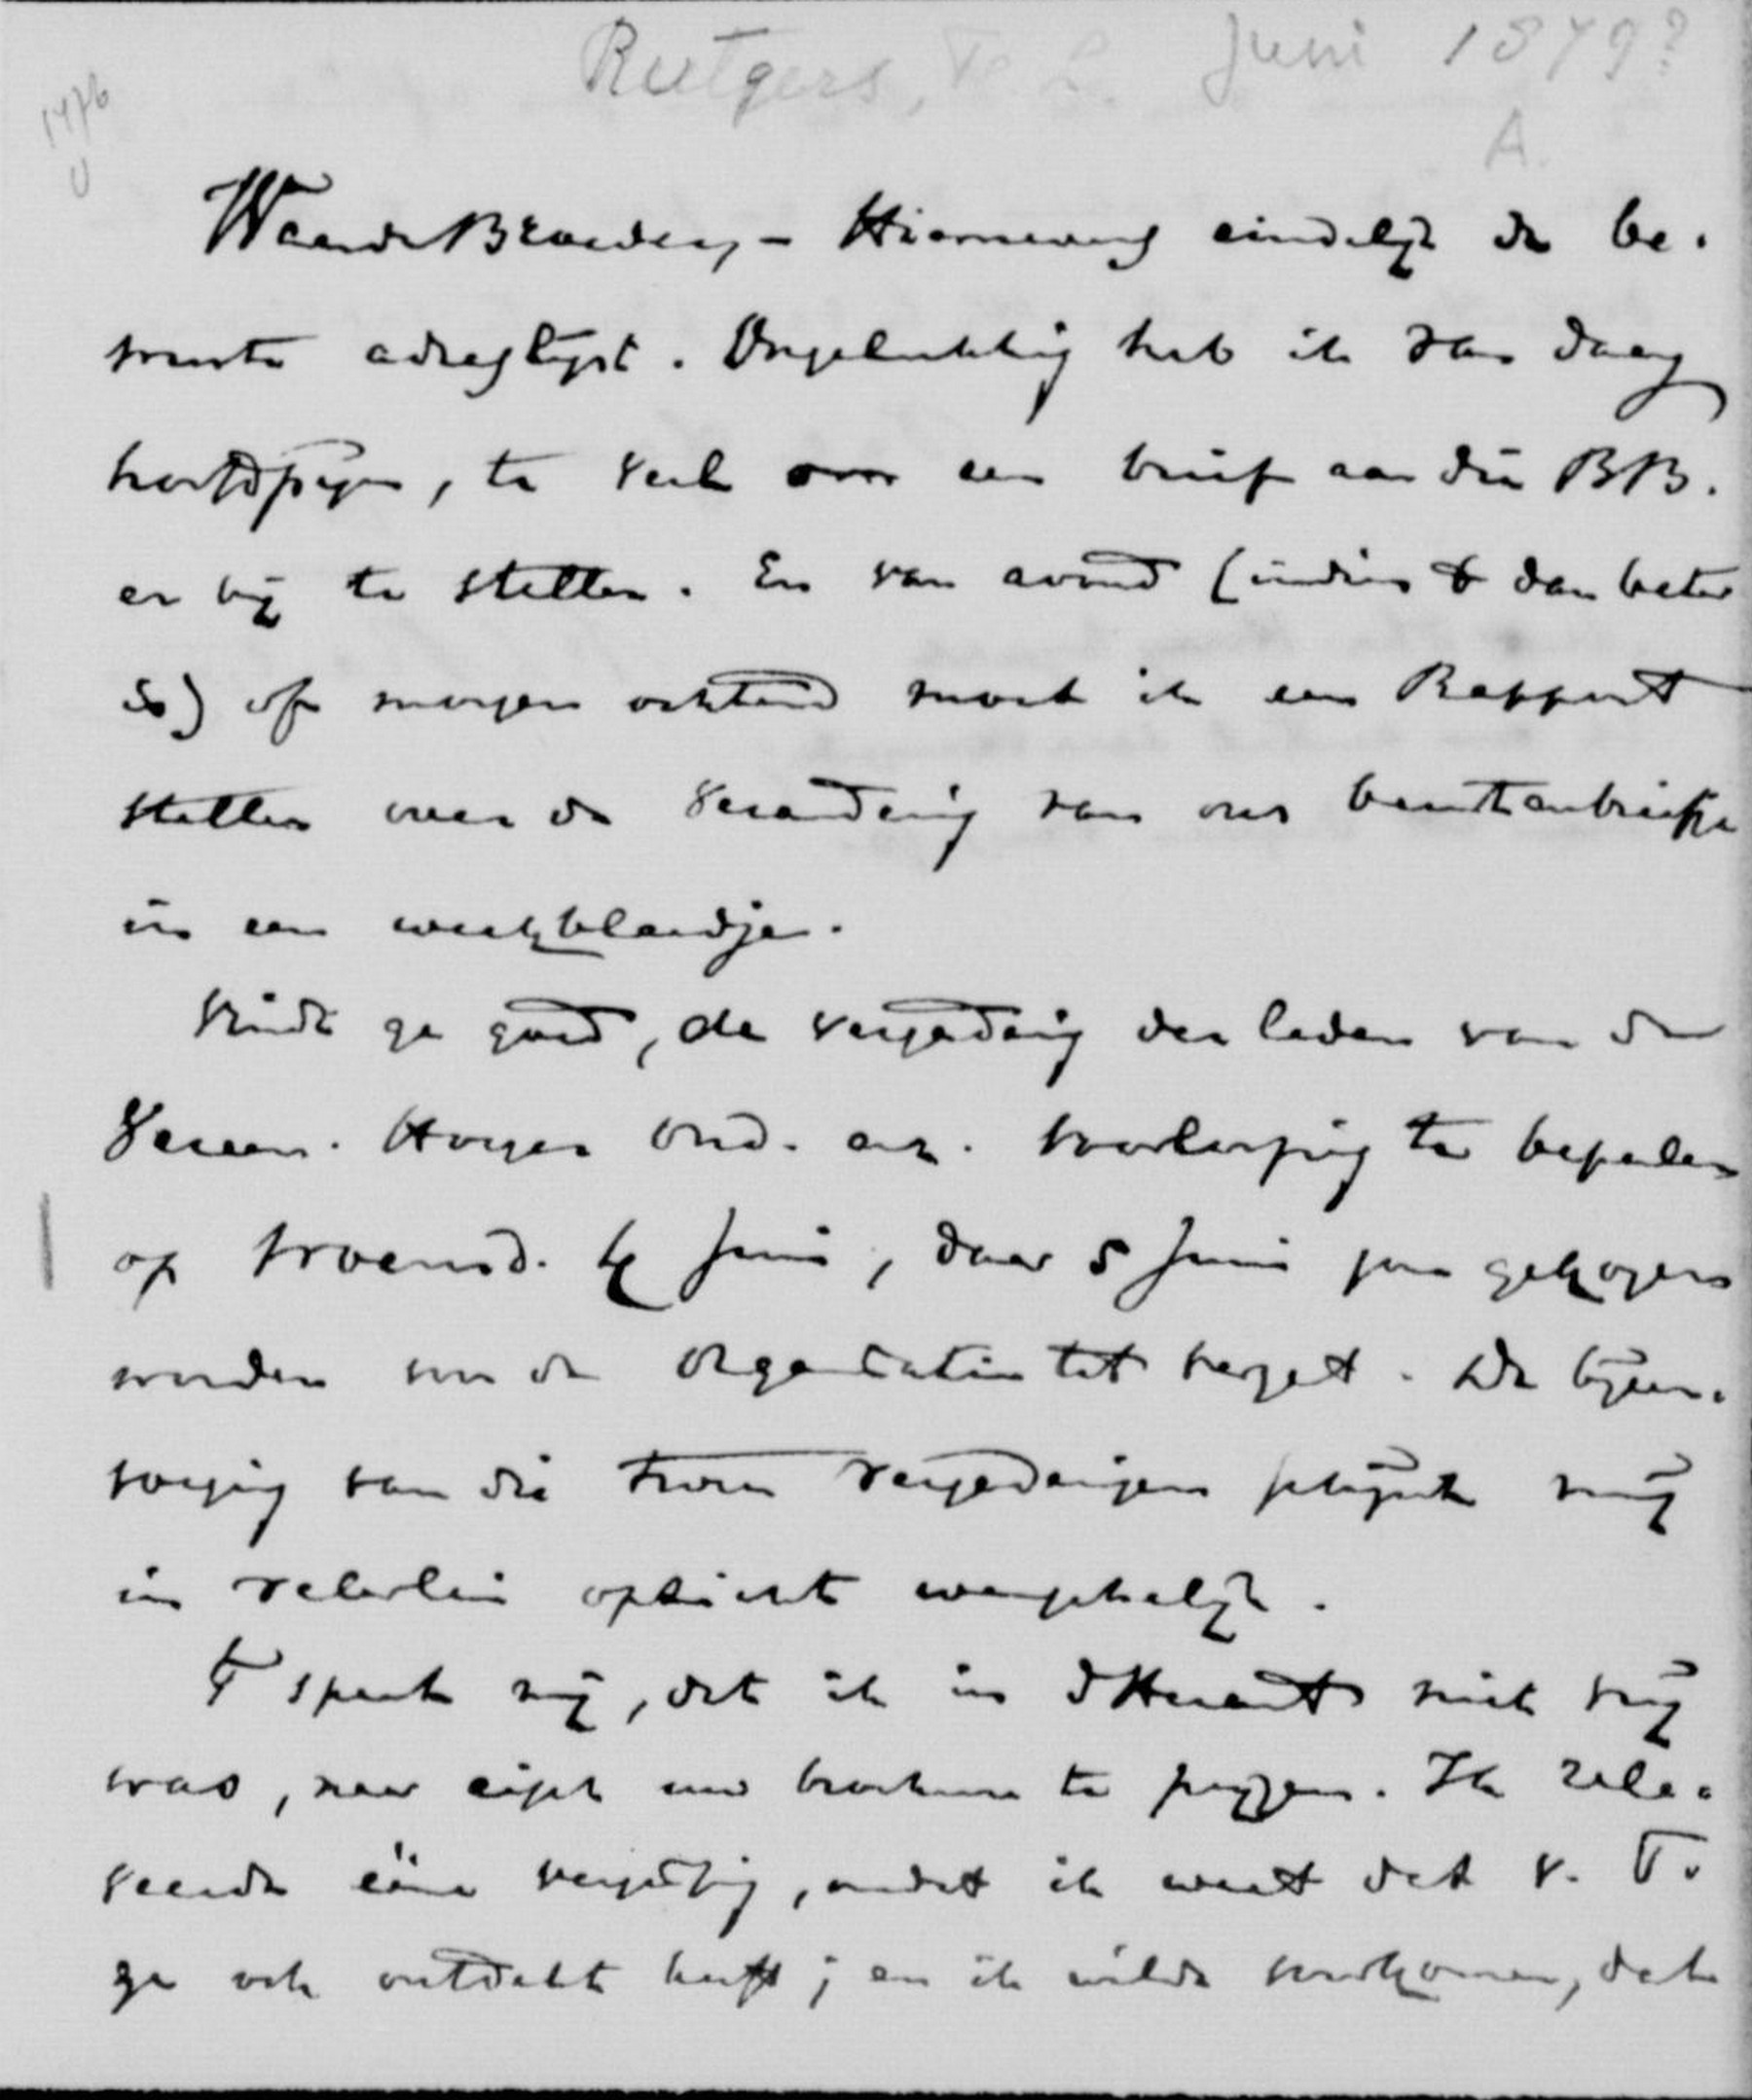 Rutgers, F. L. Juni 1879?
1476
A.
Waarde Broeder, - Hiernevens eindelijk de be-
wuste adreslijst. Ongelukkig heb ik van daag
hoofdpijn, te veel om een brief aan die BB.
er bij te stellen. En van avond (indien 't dan beter
is) of morgen ochtend moet ik een Rapport
stellen over de verandering van ons correspondentie
in een weekblaadje.
Vindt ge goed, de vergadering der leden van de
Vereen. Hooger Ond. enz. voorloopig te bepalen
op woensd. 4 Juni, daar 5 Juni zou gekozen
worden voor de Organisatie tot verzet. De bijeen-
voeging van die twee vergaderingen schijnt mij
in velerlei opzicht wenschelijk.
't Speet mij, dat ik in d'Heraut niet vrij
was, naar eisch uw brochure te prijzen. Ik rele-
veerde ééne vergissing, omdat ik weet dat v. T.
ze ook ontdekt heeft; en ik wilde voorkomen, dat